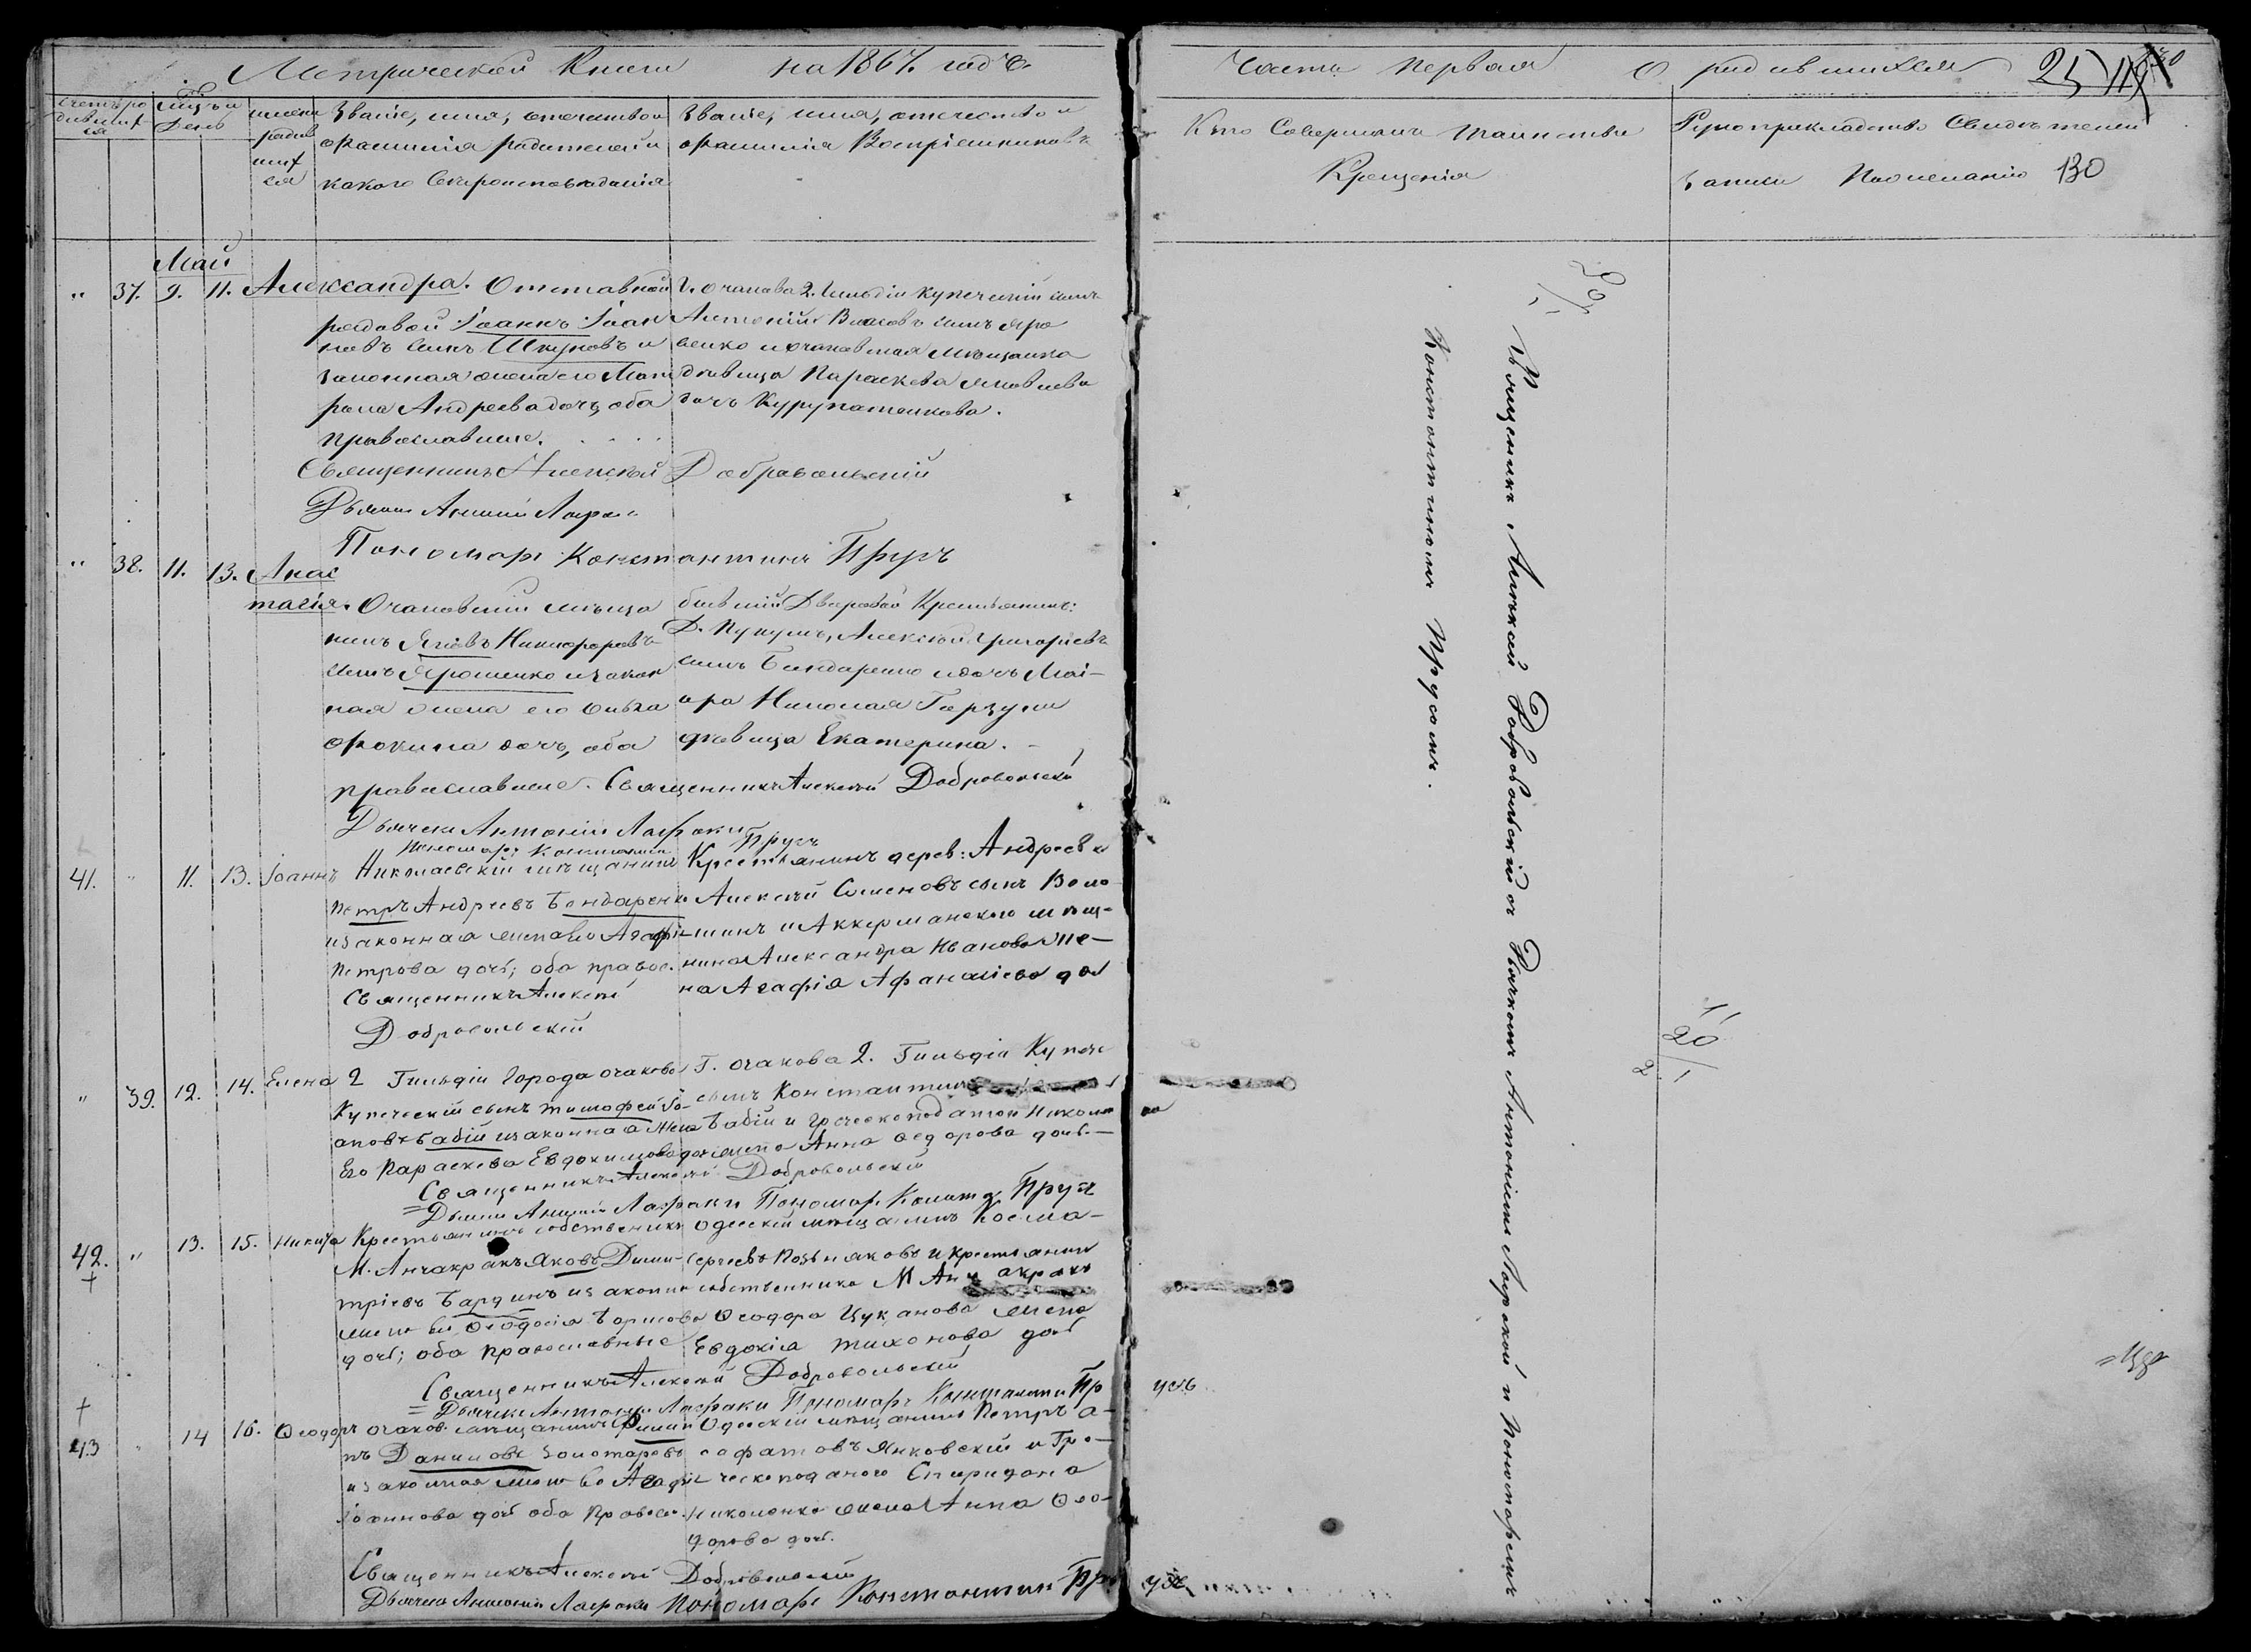 Метрической Книги на 1867. годъ.
Часть первая о родившихся 25
Счетъ родившихся
Мѣсяцъ и День
имена родившихся
Званіе, имя, отечество и фамилія родителей и какого вѣроисповѣданія
Званіе, имя, отечество и фамилія Воспріемниковъ
Кто Совершалъ таинство Крещенія
Рукоприкладство Свидѣтелей записи по желанію 130
Май
" 37. 9. 11. Александра. Отставной
рядовой Іоаннъ Іоан
новъ сынъ Шкуновъ и
законная жена его Мат
рона Андреева дочь, оба
православные.
Г. Очакова 2. Гильдіи купеческій сынъ
Антоній Власовъ сынъ Яро
венко и очаковская мѣщанка
дѣвица Параскева Яковлева
дочь Курупатенкова.
Священникъ Алексѣй Добровольскій
Дьячекъ Антоній
Пономарь Константинъ Прусъ
" 38. 11. 13. Анас
тасія. Очаковскій мѣща
нинъ Яковъ Никифоровъ
сынъ Ярошенко и закон
ная жена его
дочь, оба
православные.
бывшій Дворовой Крестьянинъ:
Д. Алексѣй Григорьевъ
сынъ Бондаренко и дочь Маі-
ора Николая
дѣвица Екатерина. -
Священникъ Алексѣй Добровольскій
Дьячекъ Антоній Лафаки
Пономарь Константинъ Прусъ
41. " 11. 13. Іоаннъ Николаевскій мѣщанинъ
Петръ Андреевъ Бондаренко
и законная жена его Агафія
Петрова дочь; оба правос.
Крестьянинъ дерев: Андреевки
Алексѣй Семеновъ сынъ Воло
шинъ и Аккерманскаго мѣща-
нина Александра Иванова же-
на Агафія Афанасіева дочь
Священникъ Алексѣй
Добровольскій
" 39. 12. 14. Елена 2 Гильдіи Города Очакова
Купеческій сынъ Тимофей Іо-
ановъ Бабій и законная жена
Его Параскева Евдокимова дочь
Г. Очакова 2. Гильдіи Купече
сынъ Константинъ
Бабій и Греческоподаной
жена Анна Ѳедорова дочь. —
Священникъ Алексѣй Добровольскій
Дьячекъ Антоній Лафаки Пономарь Конст. Прусъ
42. " 13. 15. Никита Крестьянинъ собственникъ
М. Анчакракъ Яковъ Дими-
тріевъ Бардинъ и законная
жена его Ѳеодосія Борисова
дочь; оба православные
Одесскій мѣщанинъ Косма-
Сергеевъ Позняковъ и крестьянина
собственника М Анчакракъ
Ѳеодора Цуканова жена
Евдокія Тихонова дочь
Священникъ Алексѣй Добровольскій
Дьячекъ Антоній Лафаки Пономарь Константинъ Прусъ
43 " 14 16. Ѳеодоръ Очаков. мѣщанинъ Филип
пъ Даниловъ Золотаревъ
и законная жена его Агафія
Іоаннова дочь оба правосл.
Одесскій мѣщанинъ Петръ А-
Янковскій и Гре-
ческоподаного Спиридона
жена Анна Ѳео-
дорова дочь.
Священникъ Алексѣй Добровольскій
Дьячекъ Антоній Лафаки Пономарь Константинъ Прусъ
Священникъ Алексѣй Добровольскій съ Дьячкомъ Антоніемъ Лафакой и Пономаремъ
Константиномъ Прусомъ.
20
1